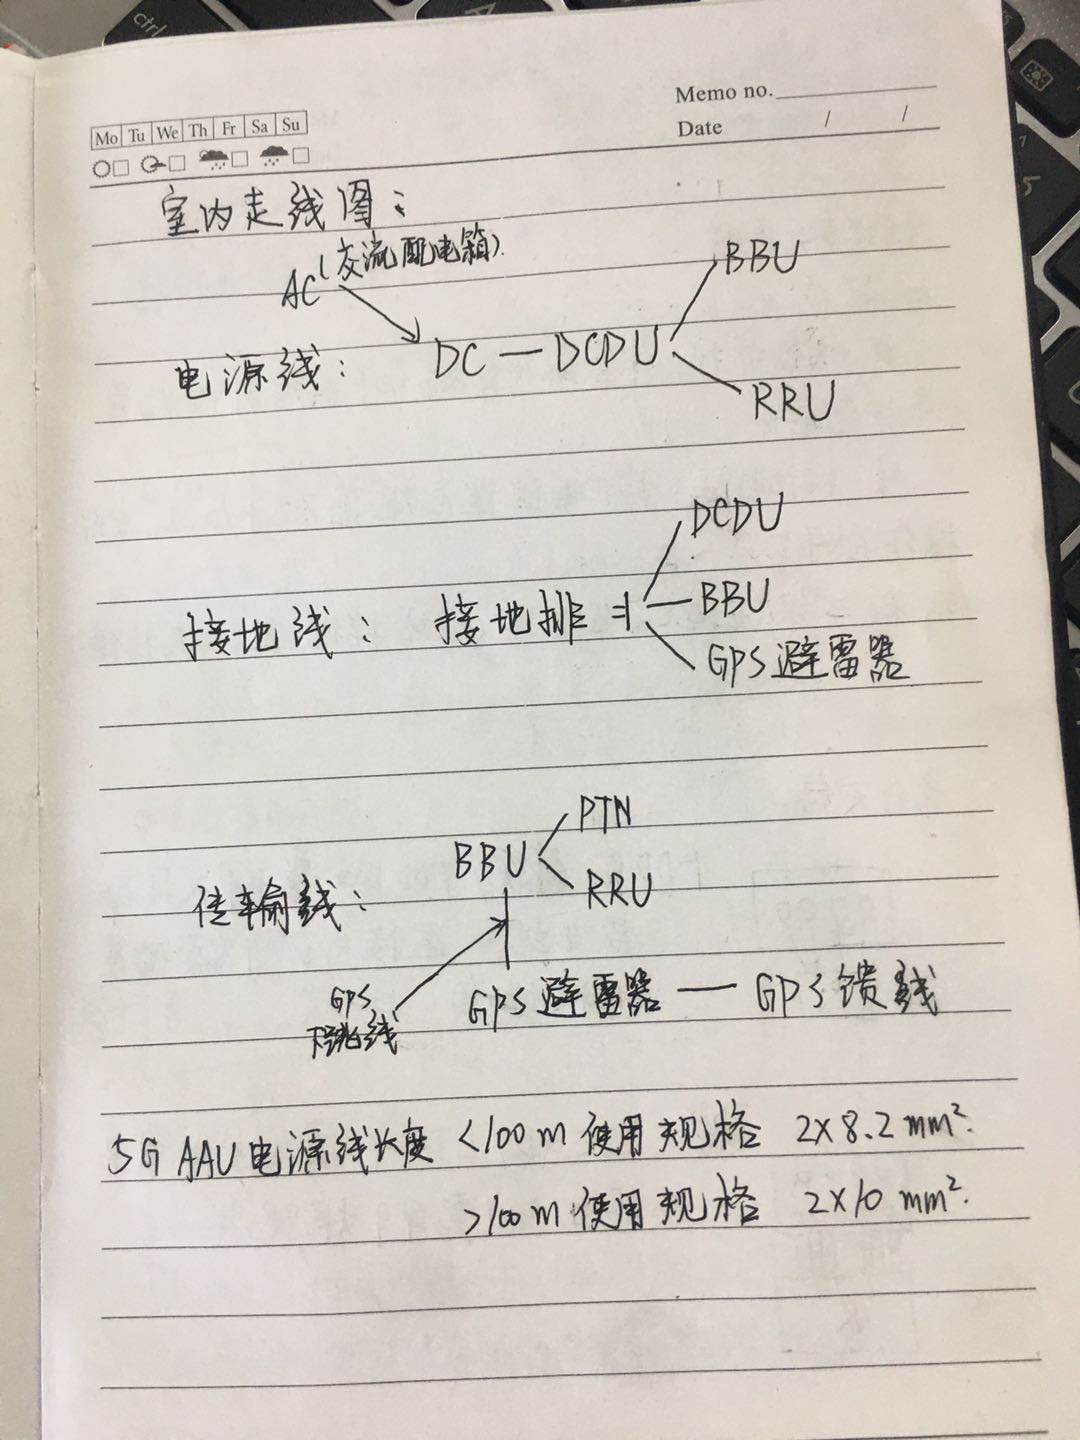 ctrl
Memo no.
Mo Tu We Th Fr Sa Su
Date / /
室内走线图：
AC（交流配电箱）
BBU
电源线： DC — DCDU
RRU
DCDU
接地线： 接地排 BBU
GPS避雷器
PTN
BBU
传输线： RRU
GPS
下跳线
GPS避雷器 — GPS馈线
5G AAU电源线长度 <100m 使用规格 2×8.2mm².
>100m 使用规格 2×10mm².